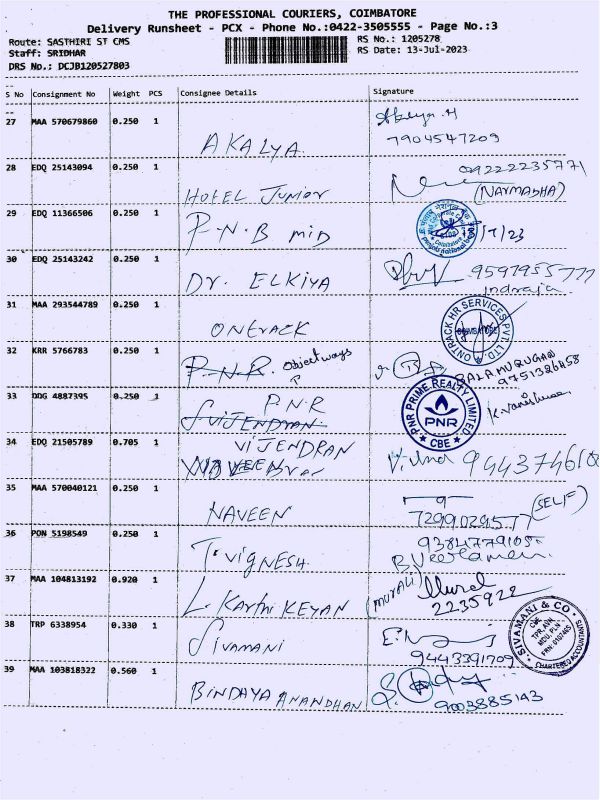 THE PROFESSIONAL COURIERS, COIMBATORE
Delivery Runsheet - PCX - Phone No.:0422-3505555 - Page No.:3
Route: SASTHIRI ST CMS
RS No.: 1205278
Staff: SRIDHAR
RS Date: 13-Jul-2023
DRS No.: DCJB120527803
S No Consignment No Weight PCS Consignee Details Signature
27 MAA 570679860 0.250 1
AKALYA
7904547209
28 EDQ 25143094 0.250 1
HOTEL Junior
(NARMADHA)
29 EDQ 11366506 0.250 1
P.N.B MID
/7/23
30 EDQ 25143242 0.250 1
Dr. ELKIYA
Indraja
31 MAA 293544789 0.250 1
ONTRACK
ONTRACK HR SERVICES PVT. LTD.
32 KRR 5766783 0.250 1
P.N.R. Objectways
BALAMURUGAN
33 DDG 4887395 0.250 1
P.N.R
VIJENDRAN
PNR PRIME REALTY LIMITED
PNR
CBE
34 EDQ 21505789 0.705 1
VIJENDRAN
NAVEEN
35 MAA 570040121 0.250 1
NAVEEN
(SELF)
36 PON 5198549 0.250 1
T. VIGNESH
37 MAA 104813192 0.920 1
L. Karthi KEYAN
(MURALI)
2235922
38 TRP 6338954 0.330 1
SIVAMANI
9443391709
SIVAMANI & CO.
CHARTERED ACCOUNTANTS
39 MAA 103818322 0.560 1
BINDAYA ANANDHAN
9003885143